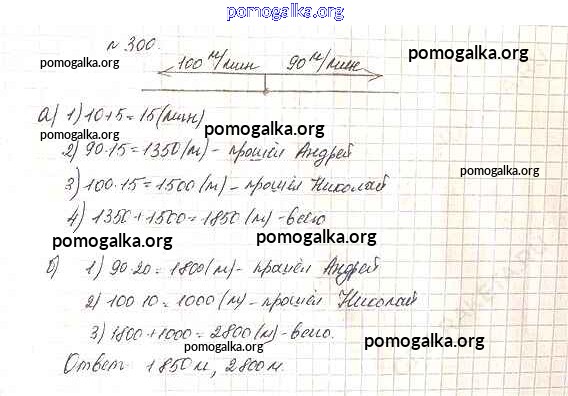 pomogalka.org
N 300.
pomogalka.org 100 м/мин 90 м/мин pomogalka.org
а) 1) 10+5=15(мин)
pomogalka.org
2) 90·15=1350(м)- прошёл Андрей
pomogalka.org
3) 100·15=1500(м)- прошёл Николай
4) 1350+1500=1850(м)-всего
pomogalka.org pomogalka.org
б) 1) 90·20=1800(м)- прошёл Андрей
2) 100·10=1000(м)- прошёл Николай
3) 1800+1000=2800(м)-всего.
pomogalka.org pomogalka.org
Ответ 1850м, 2800м.
pomogalka.org